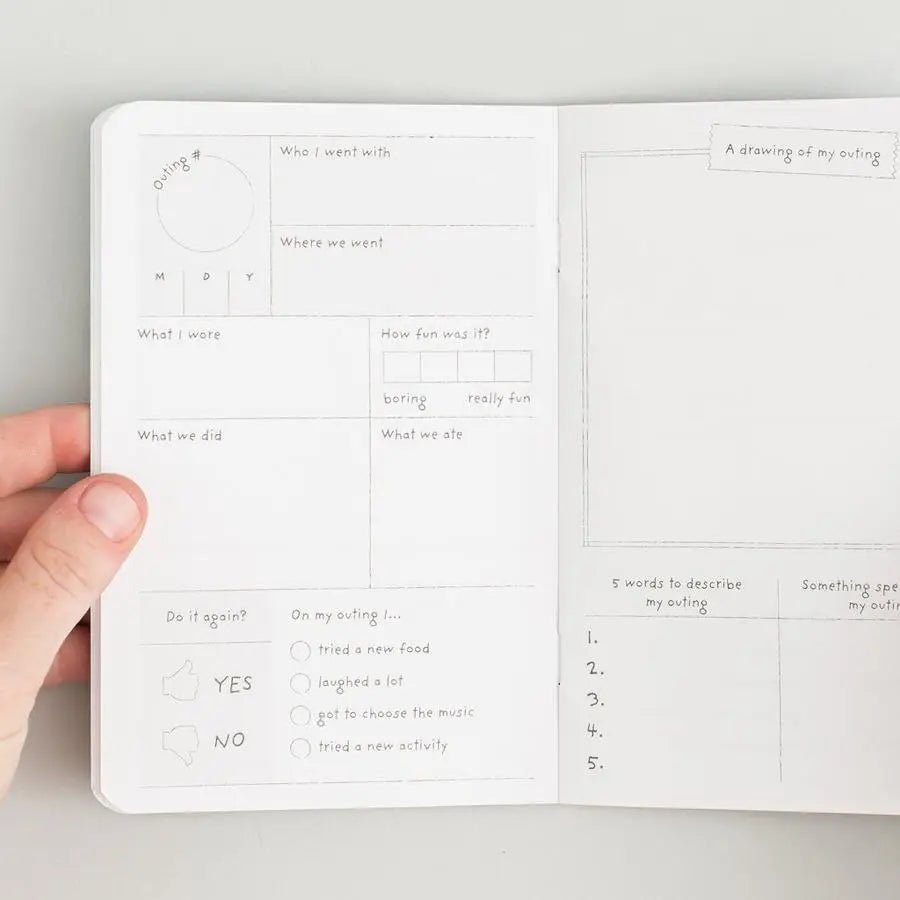 Outing #
M D Y
Who I went with
Where we went
What I wore
How fun was it?
boring really fun
What we did
What we ate
Do it again?
YES
NO
On my outing I...
tried a new food
laughed a lot
got to choose the music
tried a new activity
A drawing of my outing
5 words to describe
my outing
1.
2.
3.
4.
5.
Something
my